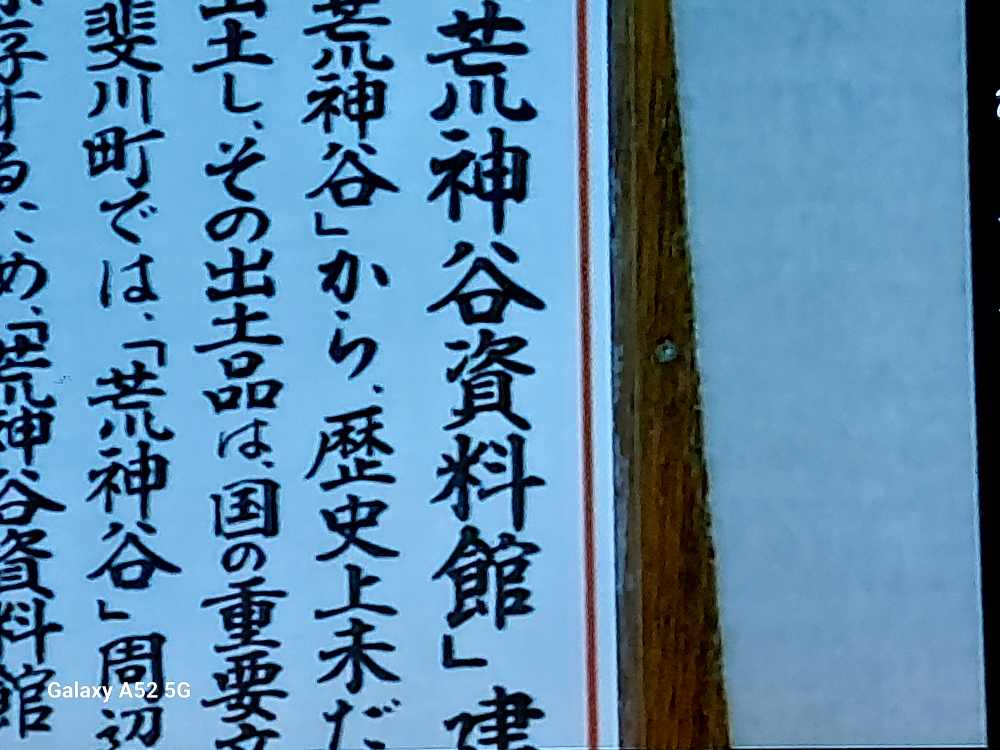 荒神谷資料館」建
荒神谷」から、歴史上未だ
出土し、その出土品は、国の重要文
斐川町では、「荒神谷」周辺
存するため、「荒神谷資料館
Galaxy A52 5G